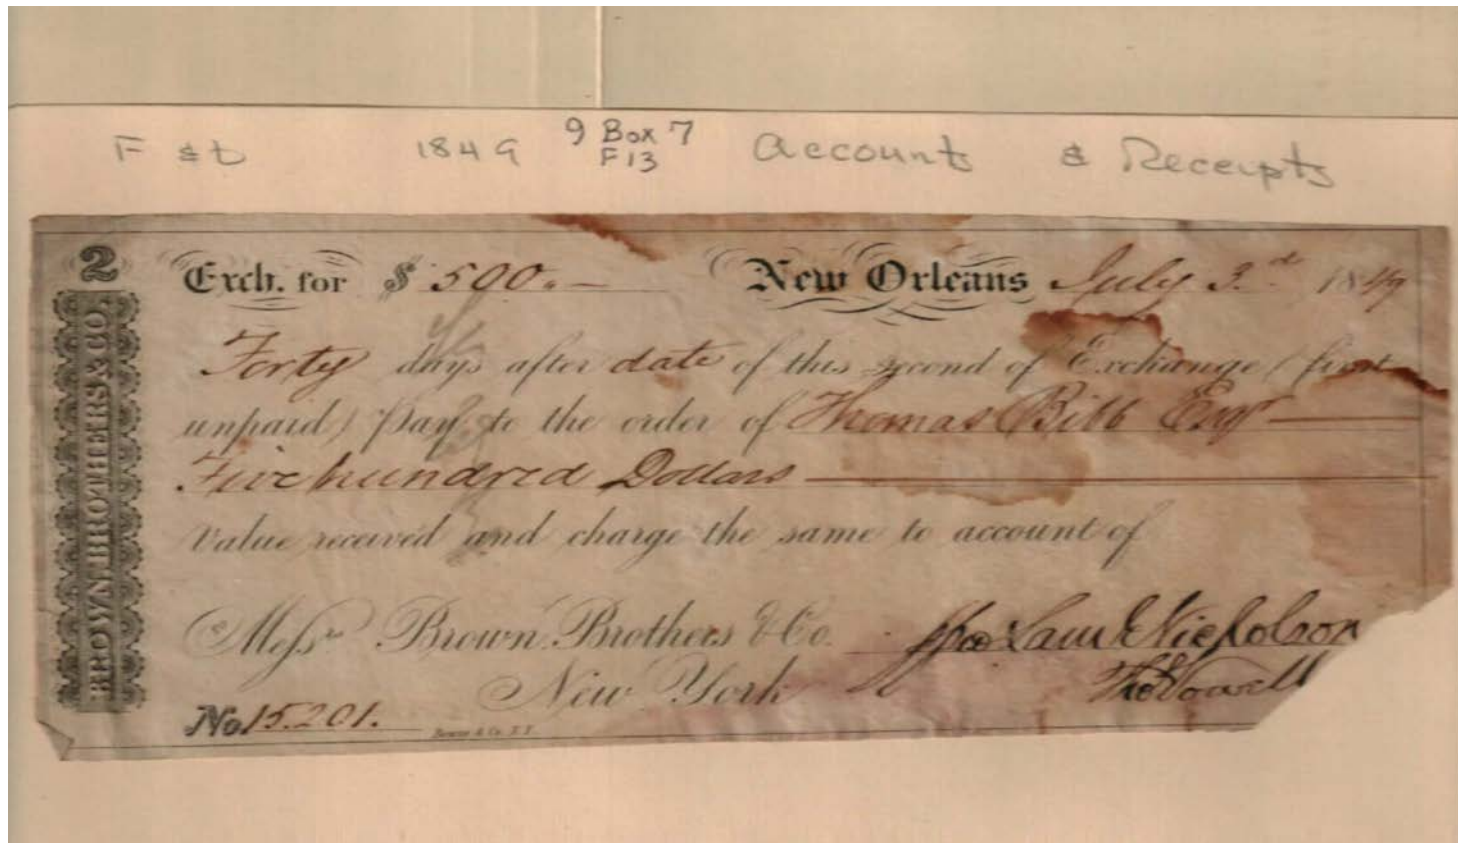 F & D 1849 9 Box 7 Accounts & Receipts
F13
2
BROWN BROTHERS & CO.
Exch. for $ 500.— New Orleans July 3.d 1849
Forty days after date of this second of Exchange (first
unpaid) Pay to the order of Thomas Bibb Esqr
Five hundred Dollars
Value received and charge the same to account of
Messrs Brown Brothers & Co. Nicholson
New York
No 15.201.